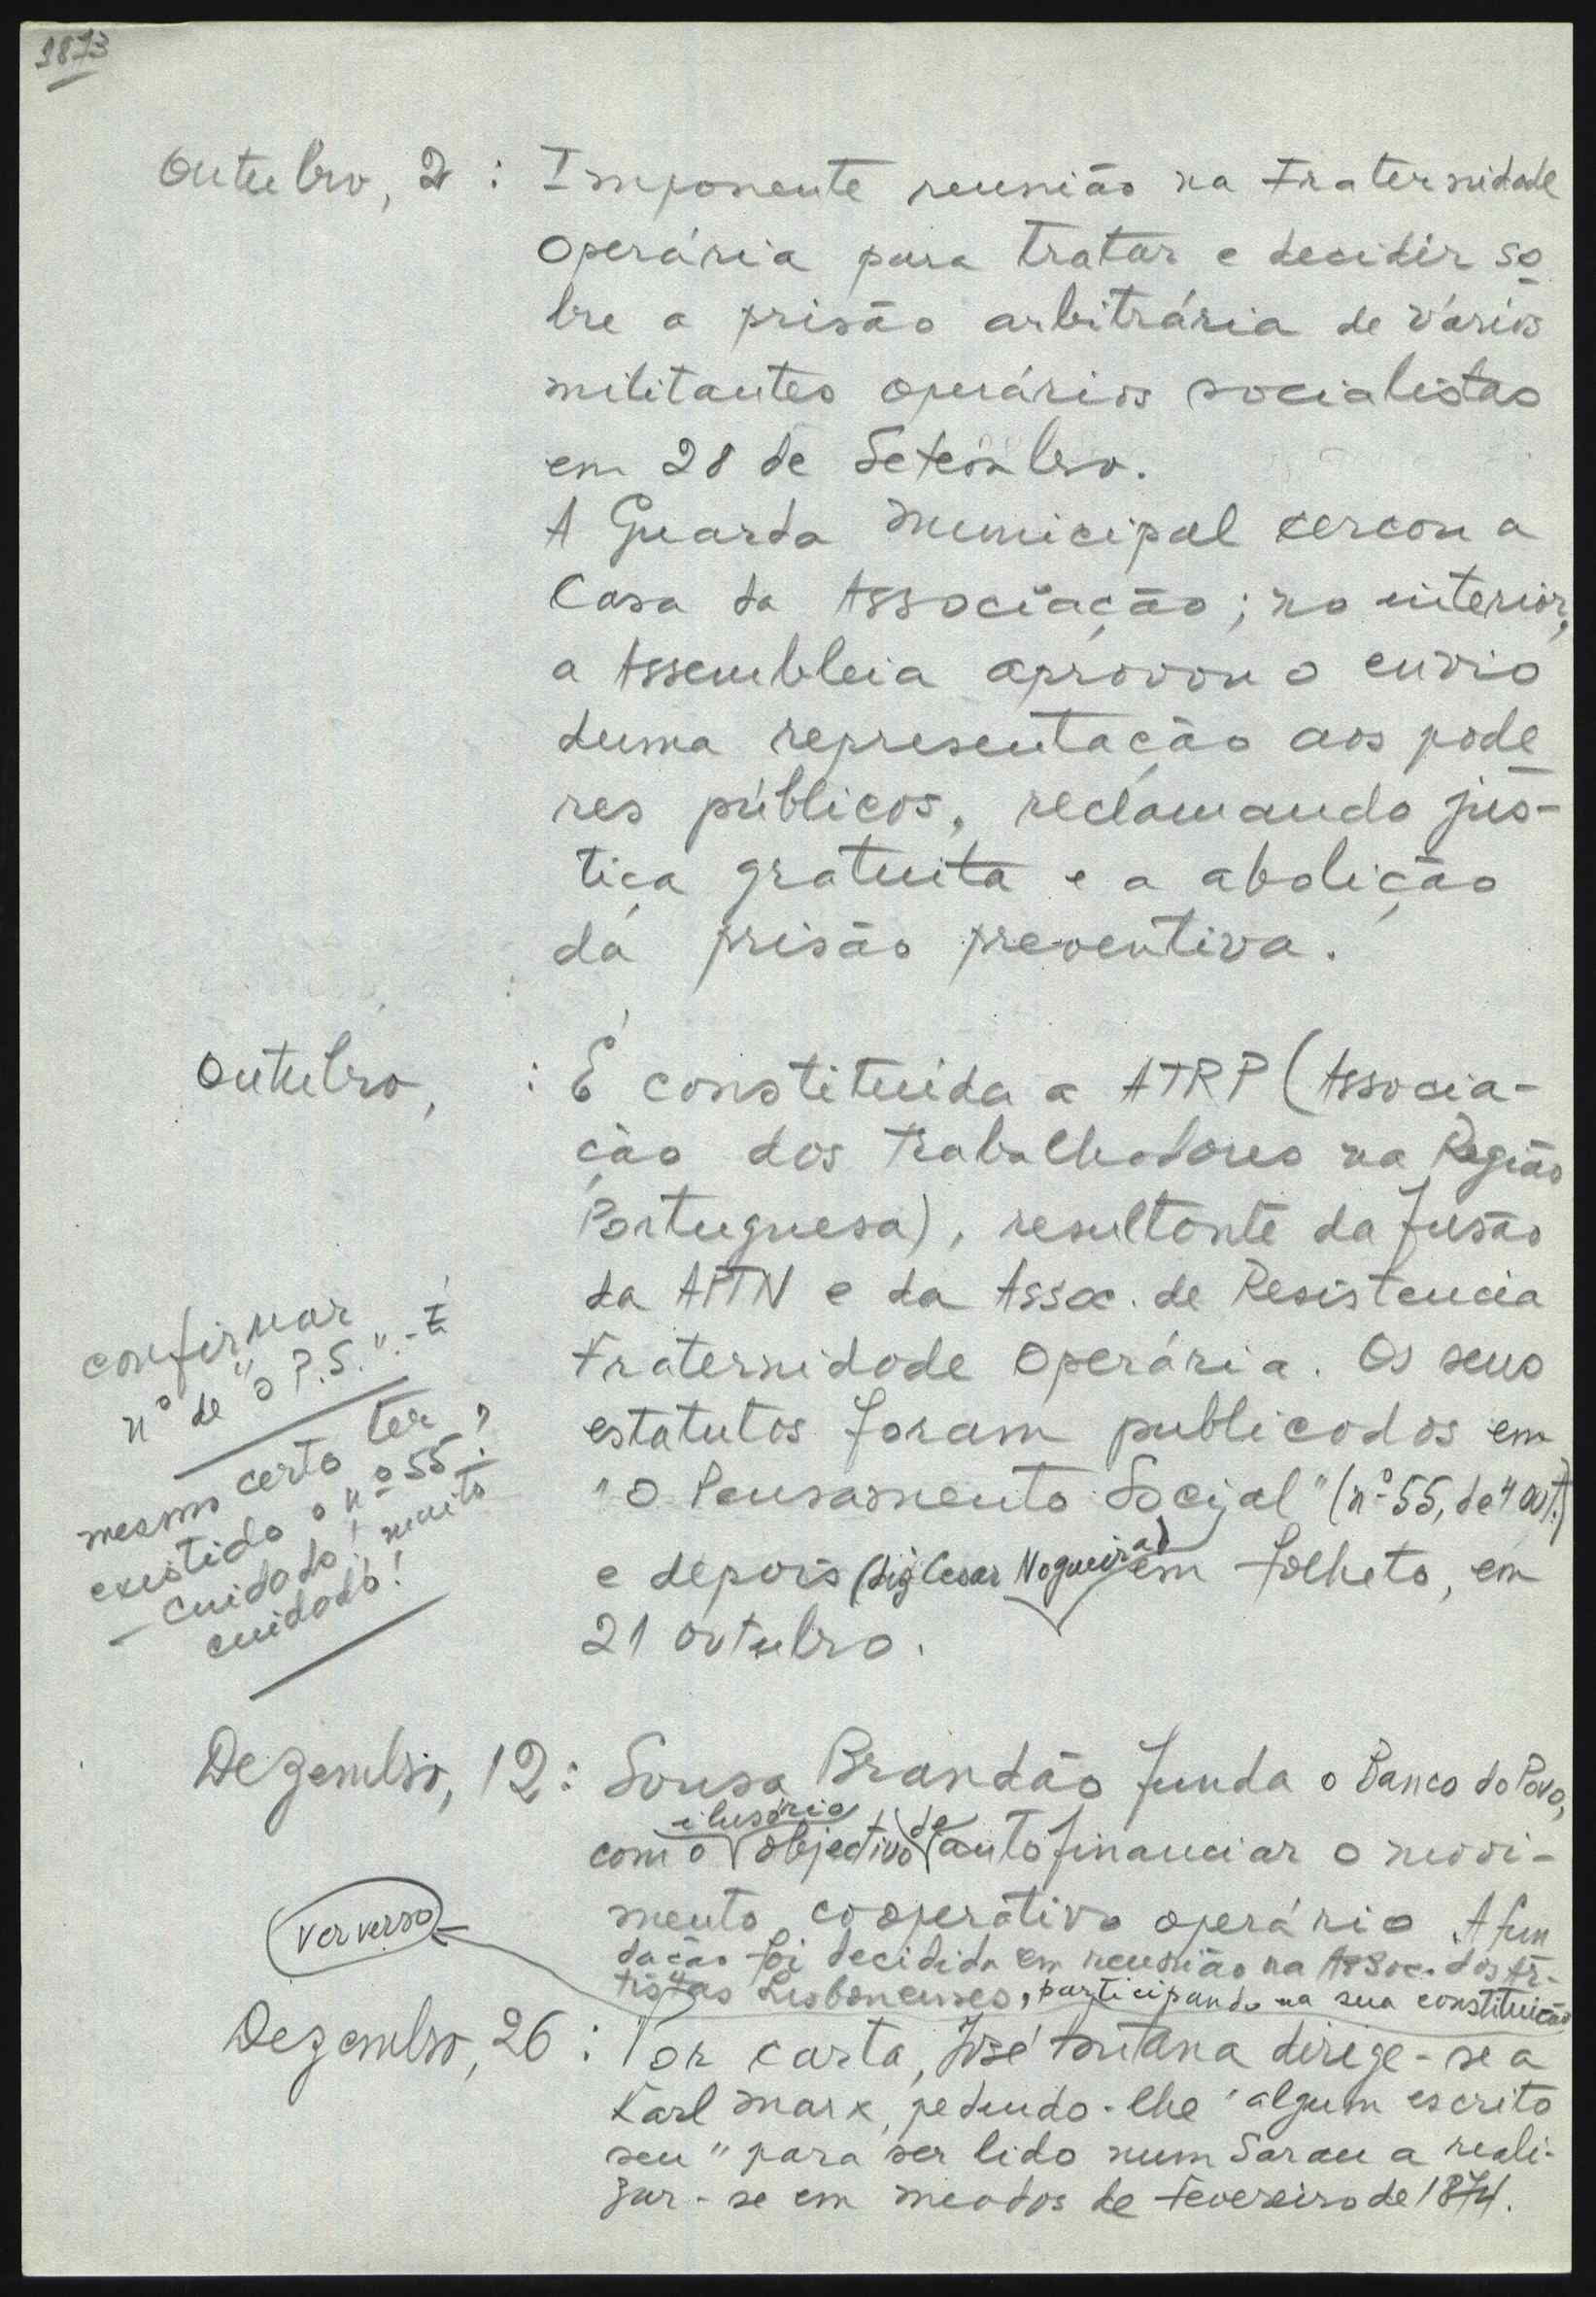 1873
Outubro, 2 : Imponente reunião na Fraternidade
Operária para tratar e decidir so
bre a prisão arbitrária de vários
militantes operários socialistas
em 28 de Setembro.
A Guarda Municipal cercou a
Casa da Associação; no interior,
a Assembleia aprovou o envio
duma representação aos pode
res públicos, reclamando jus-
tiça gratuita e a abolição
da prisão preventiva.
Outubro, : É constituída a ATRP (Associa-
ção dos Trabalhadores na Região
Portuguesa), resultante da fusão
da APTN e da Assoc. de Resistencia
Fraternidade Operária. Os seus
estatutos foram publicados em
"O Pensamento Social" (nº 55, de 4 out.)
e depois (diz Cesar Nogueira) em folheto, em
21 outubro.
confirmar
nº de "O P.S.". - É
mesmo certo ter
existido o nº 55?
- cuidado! muito
cuidado!
Dezembro, 12: Sousa Brandão funda o Banco do Povo,
com o ilusório objectivo de autofinanciar o movi-
mento cooperativo operário. A fun
dação foi decidida em reunião na Assoc. dos Ar-
tistas Lisbonenses, participando na sua constituição
ver verso
Dezembro, 26 : Por carta, José Fontana dirige-se a
Karl Marx, pedindo-lhe "algum escrito
seu" para ser lido num Sarau a reali-
zar-se em meados de Fevereiro de 1874.